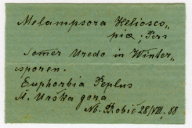 Melampsora Heliosco-
piae Pers
Sommer Uredo in Winter-
sporen.
Euphorbia Peplus
St. Urška gora
Sb. Robič 28/VIII. 88